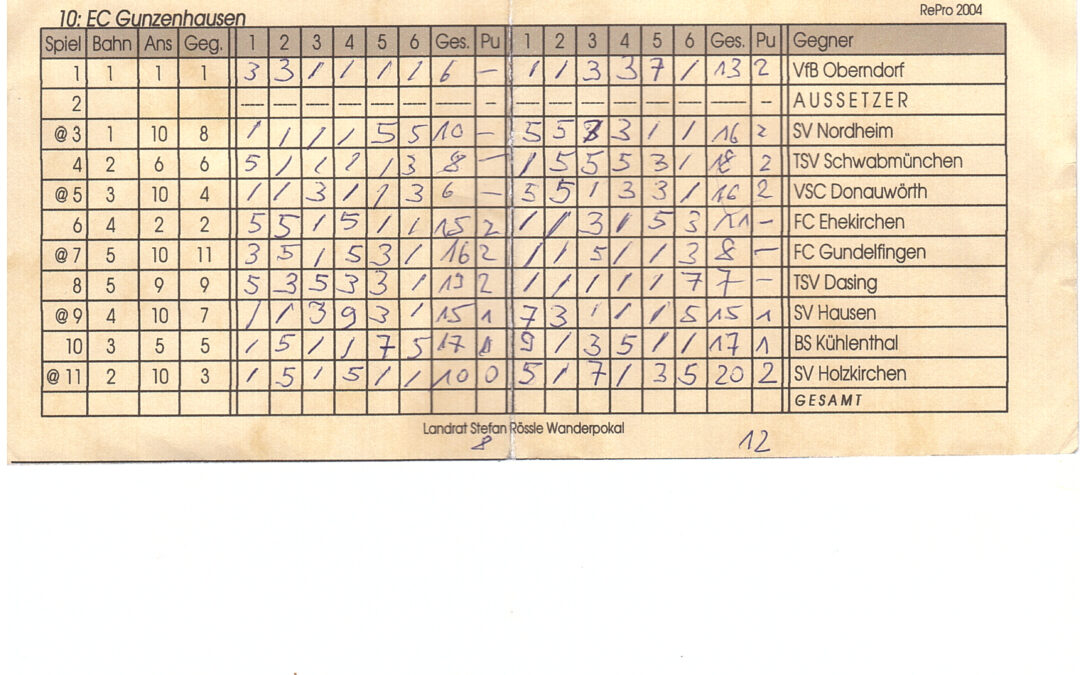 10: EC Gunzenhausen RePro 2004
Spiel Bahn Ans Geg. 1 2 3 4 5 6 Ges. Pu 1 2 3 4 5 6 Ges. Pu Gegner
1 1 1 1 3 3 / / / / 6 – / / 3 3 7 / 13 2 VfB Oberndorf
2 ---- ---- ---- ---- ---- ---- ---- -- ---- ---- ---- ---- ---- ---- ---- -- AUSSETZER
@ 3 1 10 8 / / / / 5 5 10 – 5 5 3 / / 16 2 SV Nordheim
4 2 6 6 5 / / / / 3 8 – / 5 5 5 3 / 18 2 TSV Schwabmünchen
@ 5 3 10 4 / / 3 / / 3 6 – 5 5 / 3 3 / 16 2 VSC Donauwörth
6 4 2 2 5 5 / 5 / / 15 2 / / 3 / 5 3 11 – FC Ehekirchen
@ 7 5 10 11 3 5 / 5 3 / 16 2 / / 5 / / 3 8 – FC Gundelfingen
8 5 9 9 5 3 5 3 3 / 19 2 / / / / / 7 7 – TSV Dasing
@ 9 4 10 7 / / 3 9 3 / 15 1 7 3 / / / 5 15 1 SV Hausen
10 3 5 5 / 5 / / 7 5 17 9 / 3 5 / / 17 1 BS Kühlenthal
@ 11 2 10 3 / 5 / 5 / / 10 0 5 / 7 / 3 5 20 2 SV Holzkirchen
GESAMT
Landrat Stefan Rössle Wanderpokal
8 12